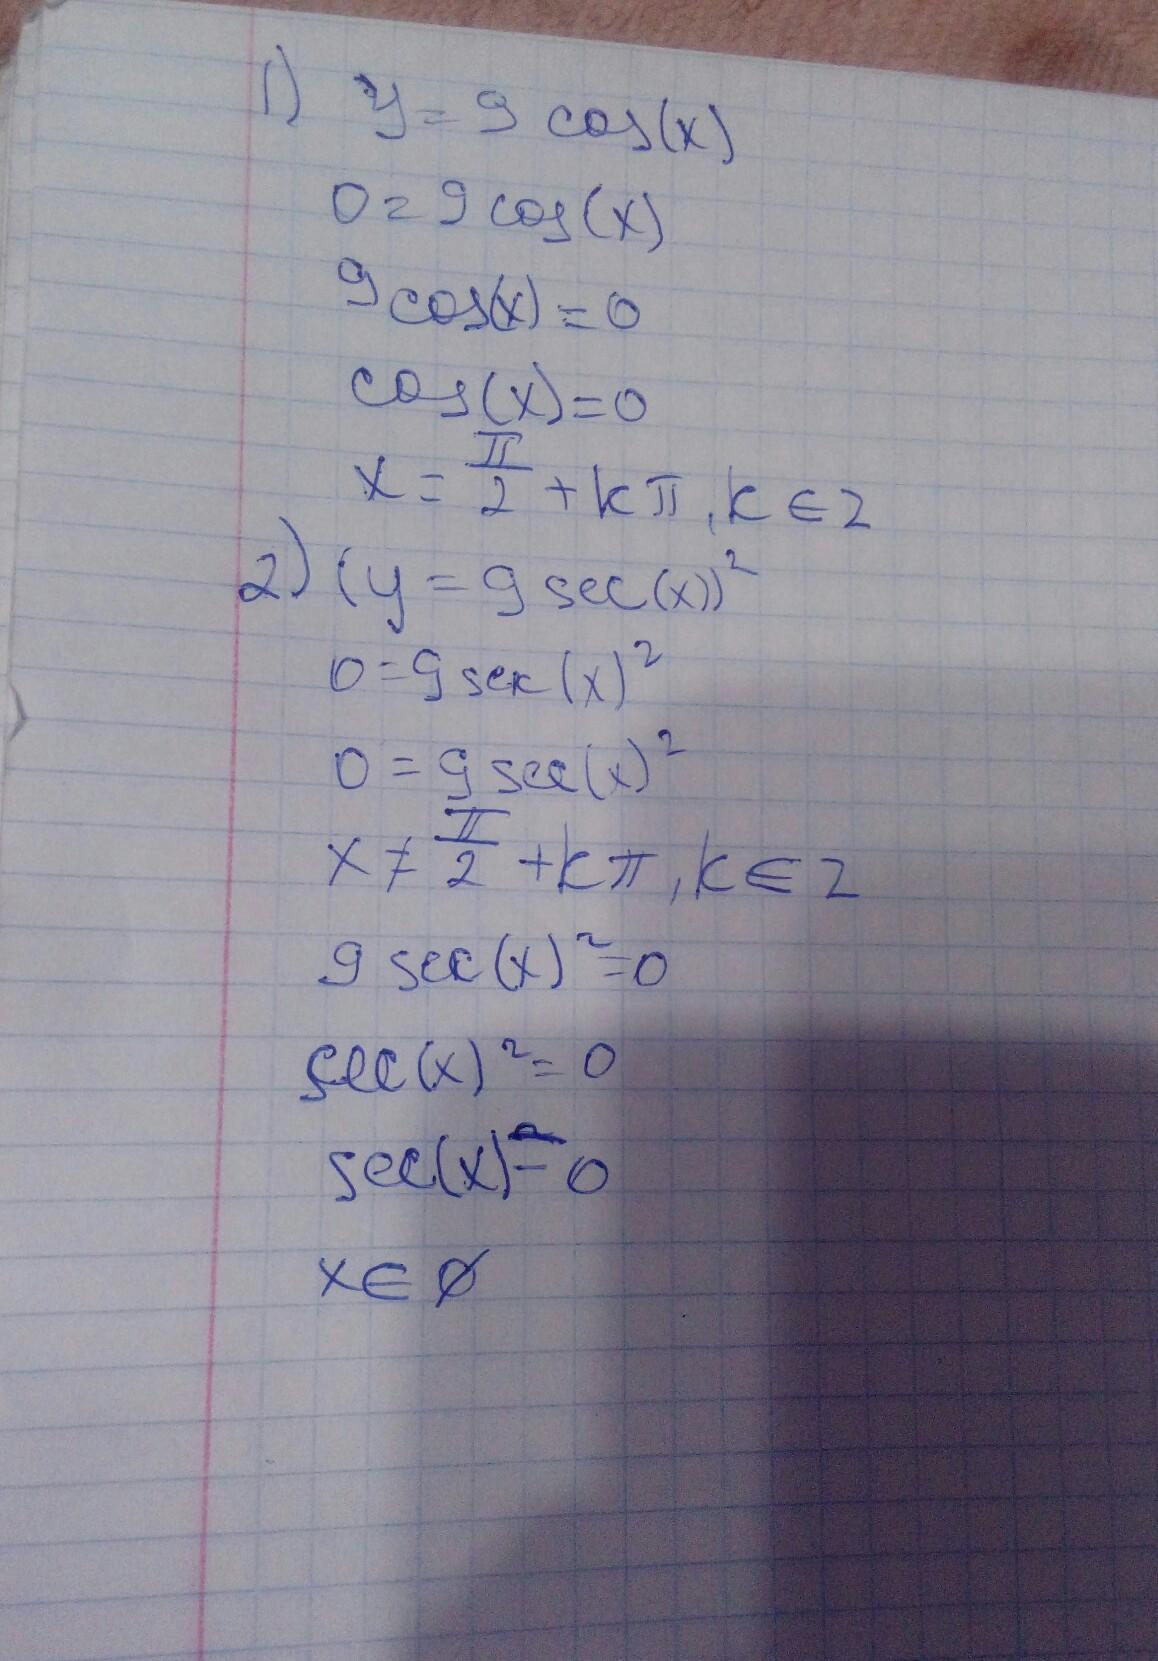 1) y = 9 cos(x)
0 = 9 cos(x)
9 cos(x) = 0
cos(x) = 0
x = π/2 + kπ, k ∈ Z
2) (y = 9 sec(x))²
0 = 9 sec(x)²
0 = 9 sec(x)²
x ≠ π/2 + kπ, k ∈ Z
9 sec(x)² = 0
sec(x)² = 0
sec(x) = 0
x ∈ ∅